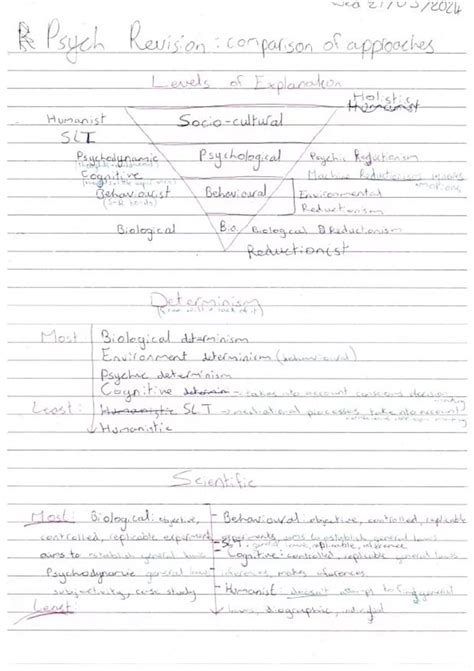 Wed 27/03/2024
Psych Revision: comparison of approaches
Levels of Explanation
Holistic
Humanist Socio-cultural Humanist
SLT
Psychodynamic Psychological Psychic Reductionism
Cognitive Machine Reductionism
Behaviourist Behavioural Environmental
Reductionism
Biological Bio. Biological Reductionism
Reductionist
Determinism
Most Biological determinism
Environment determinism (behavioural)
Psychic determinism
Cognitive - takes into account conscious decision
Least: Humanistic SLT - mediational processes, take into account
Humanistic
Scientific
Most: Biological: objective, - Behavioural: objective, controlled, replicable
controlled, replicable experiments, aims to establish general laws
- SLT: replicable, inference
aims to establish general laws - Cognitive: controlled, replicable general laws
Psychodynamic general laws inferences, makes inferences
subjectivity, case study - Humanist: doesn't attempt to general
Least: laws,